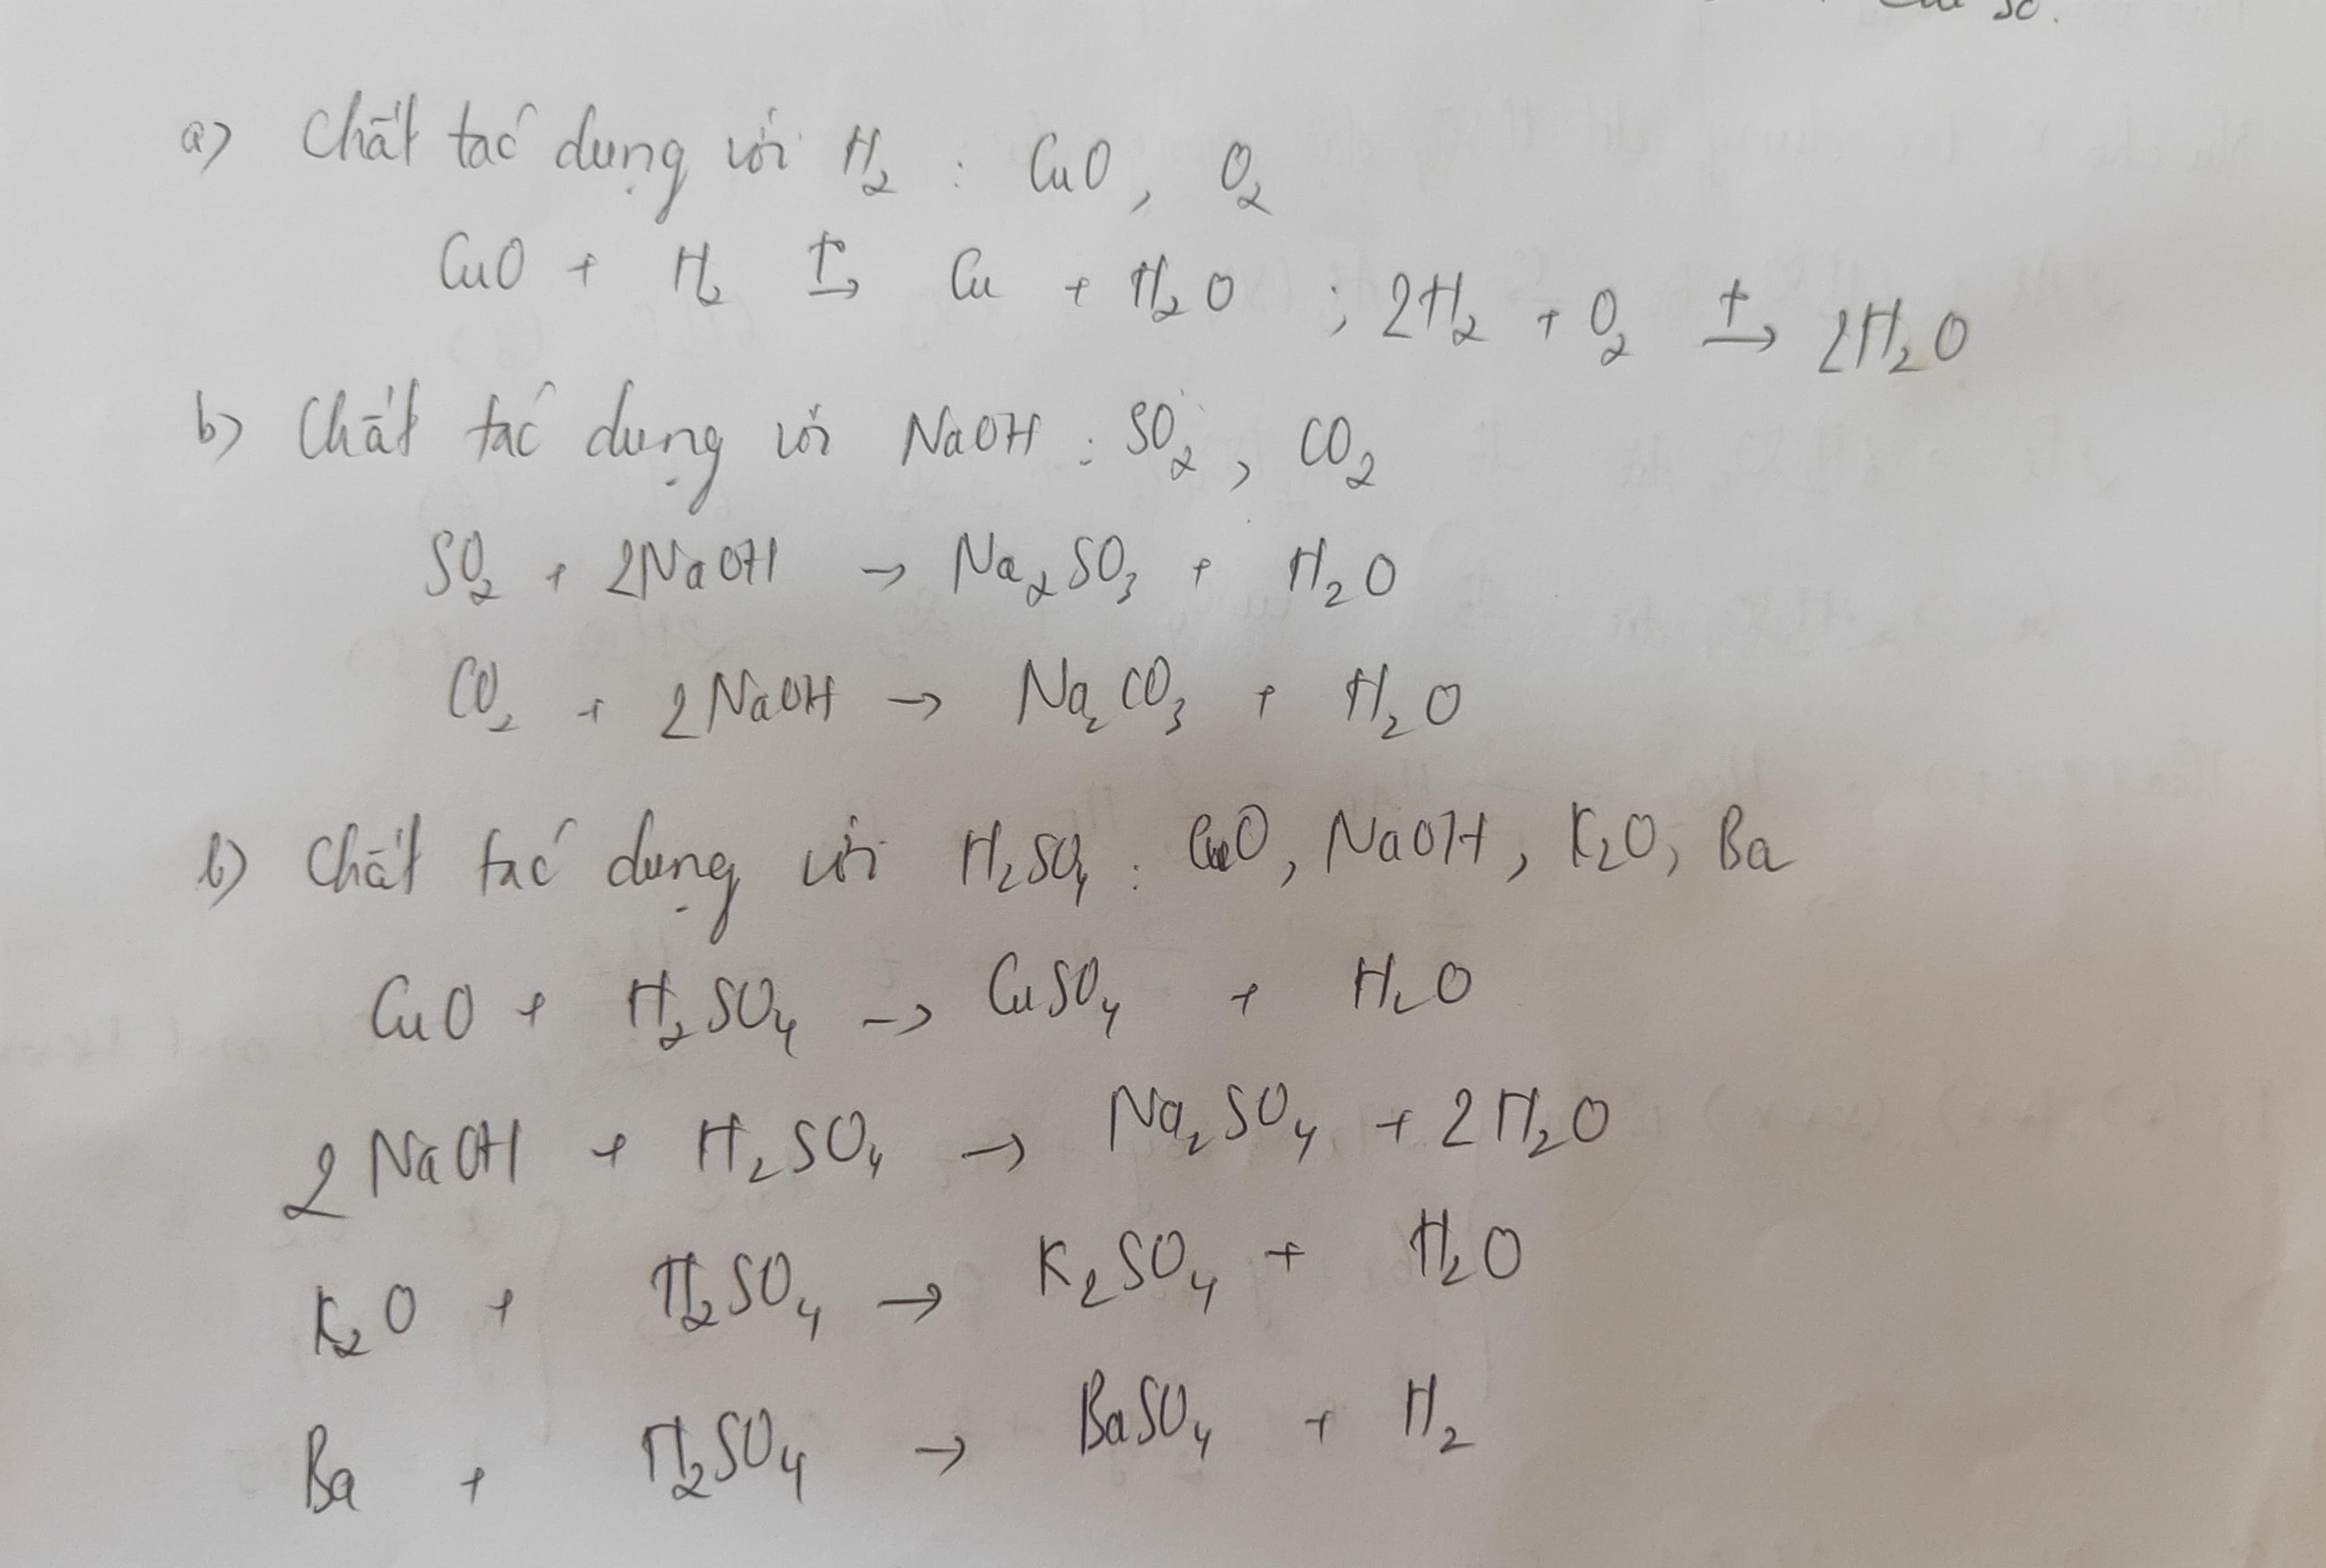 a) Chất tác dụng với H₂ : CuO, O₂
CuO + H₂ t°→ Cu + H₂O ; 2H₂ + O₂ t→ 2H₂O
b) Chất tác dụng với NaOH : SO₂, CO₂
SO₂ + 2NaOH → Na₂SO₃ + H₂O
CO₂ + 2NaOH → Na₂CO₃ + H₂O
b) Chất tác dụng với H₂SO₄ : CuO, NaOH, K₂O, Ba
CuO + H₂SO₄ → CuSO₄ + H₂O
2NaOH + H₂SO₄ → Na₂SO₄ + 2H₂O
K₂O + H₂SO₄ → K₂SO₄ + H₂O
Ba + H₂SO₄ → BaSO₄ + H₂